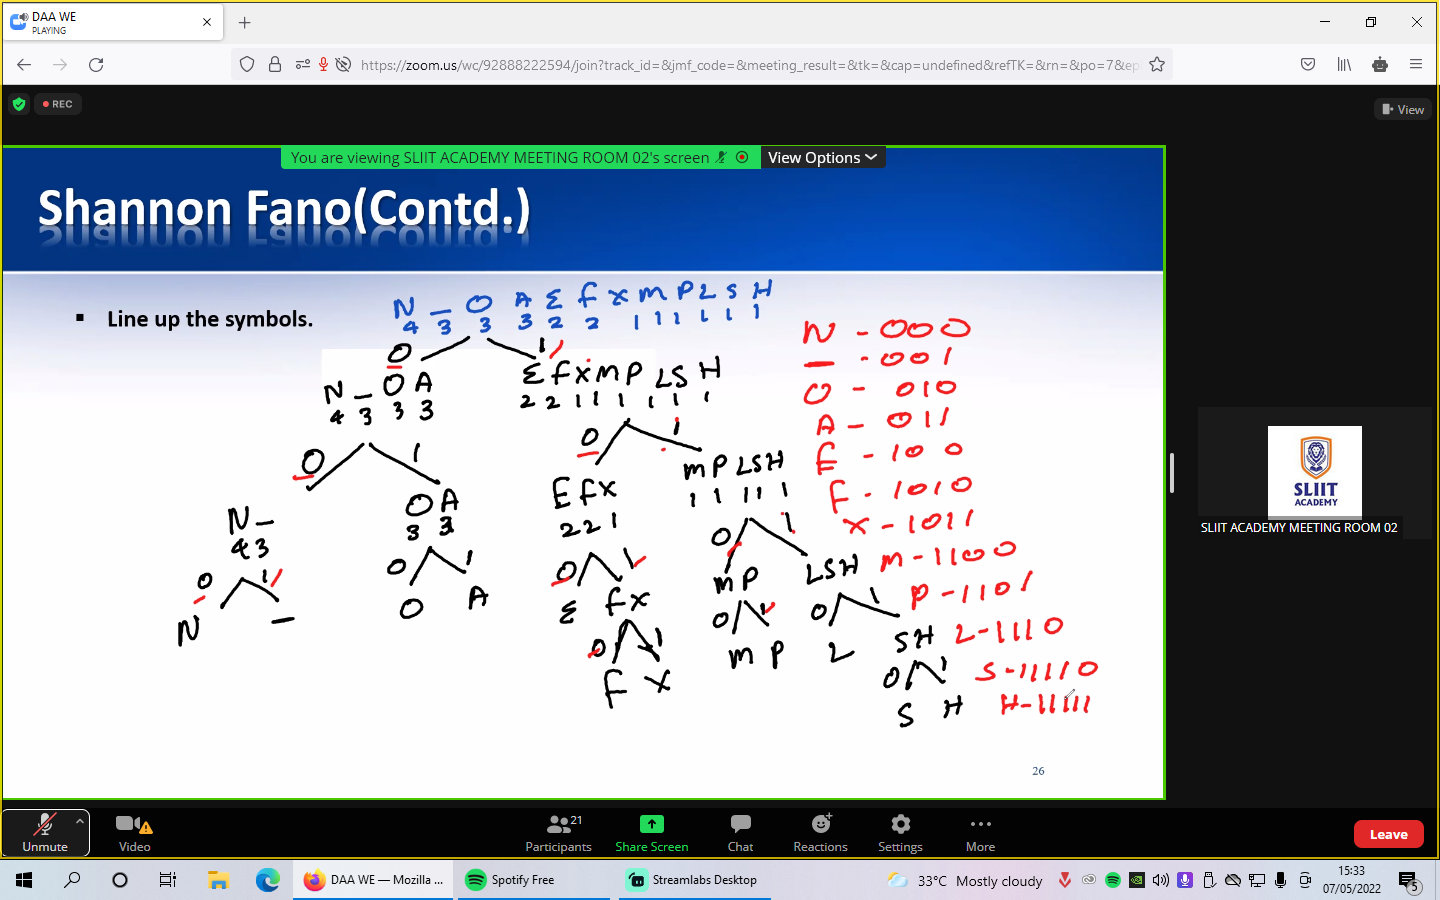 DAA WE
PLAYING
https://zoom.us/wc/92888222594/join?track_id=&jmf_code=&meeting_result=&tk=&cap=undefined&refTK=&rn=&po=7&ep
REC
View
You are viewing SLIIT ACADEMY MEETING ROOM 02's screen
View Options
Shannon Fano(Contd.)
▪ Line up the symbols.
N _ O A E F X M P L S H
4 3 3 3 2 2 1 1 1 1 1 1
0 1
N _ O A
4 3 3 3
E F X M P L S H
2 2 1 1 1 1 1 1
0 1
0 1
N _
4 3
O A
3 3
E F X
2 2 1
M P L S H
1 1 1 1 1
0 1
N _
0 1
O A
0 1
E F X
0 1
F X
0 1
M P
L S H
0 1
M P
0 1
L S H
0 1
S H
N - 000
_ - 001
O - 010
A - 011
E - 100
F - 1010
X - 1011
M - 1100
P - 1101
L - 1110
S - 11110
H - 11111
26
SLIIT
ACADEMY
SLIIT ACADEMY MEETING ROOM 02
Unmute
Video
21
Participants
Share Screen
Chat
Reactions
Settings
More
Leave
DAA WE — Mozilla ...
Spotify Free
Streamlabs Desktop
33°C Mostly cloudy
15:33
07/05/2022
5